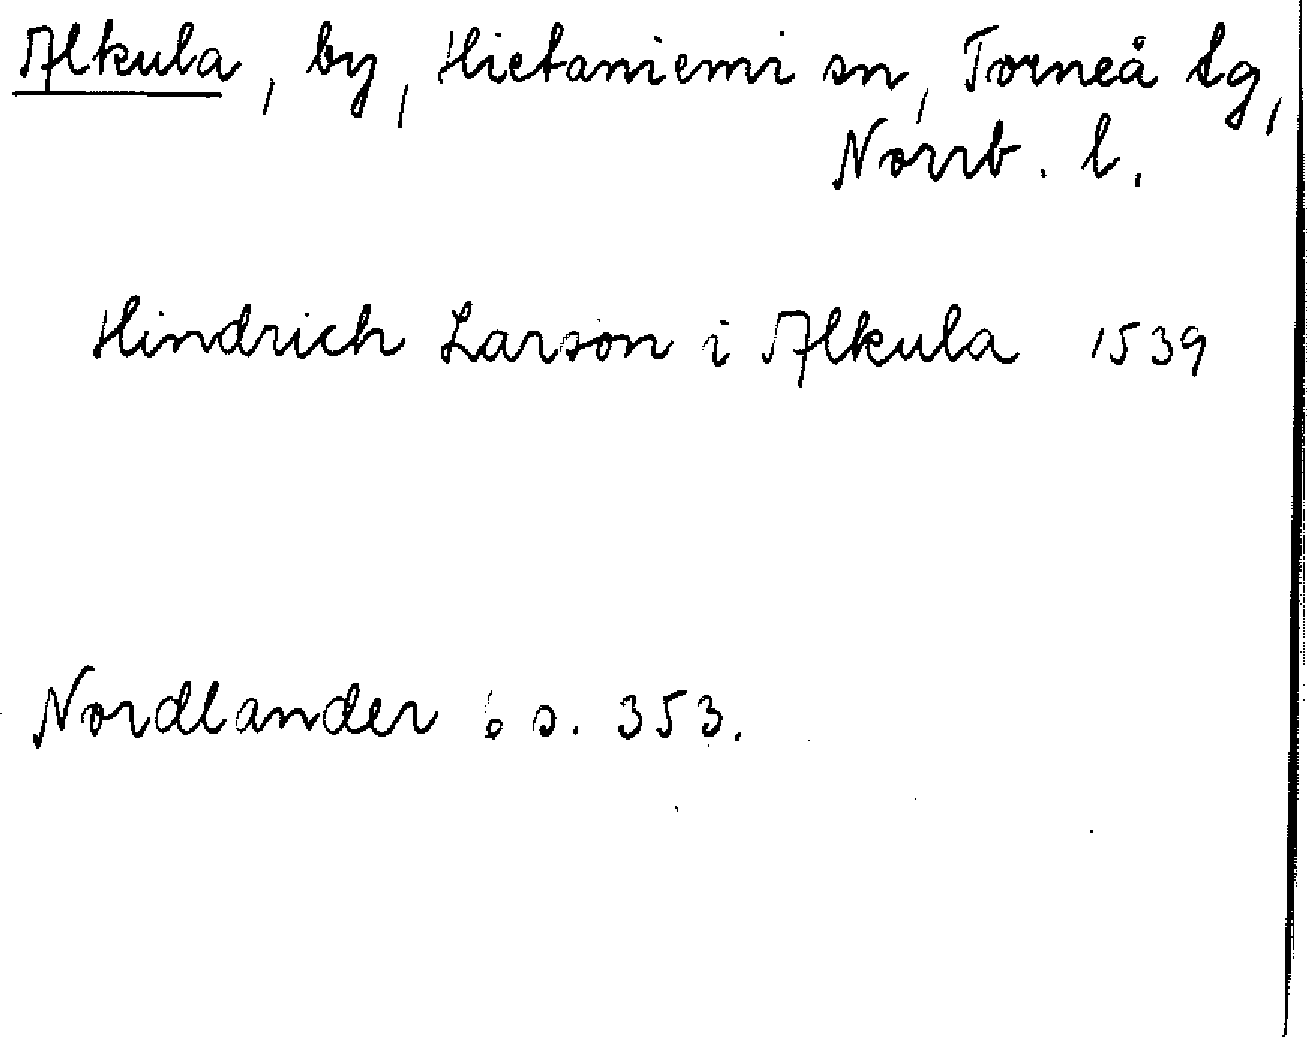 Alkula, by, Hietaniemi sn, Torneå tg,
Norrb. l.
Hindrich Larson i Alkula 1539
Nordlander 6 s. 353.